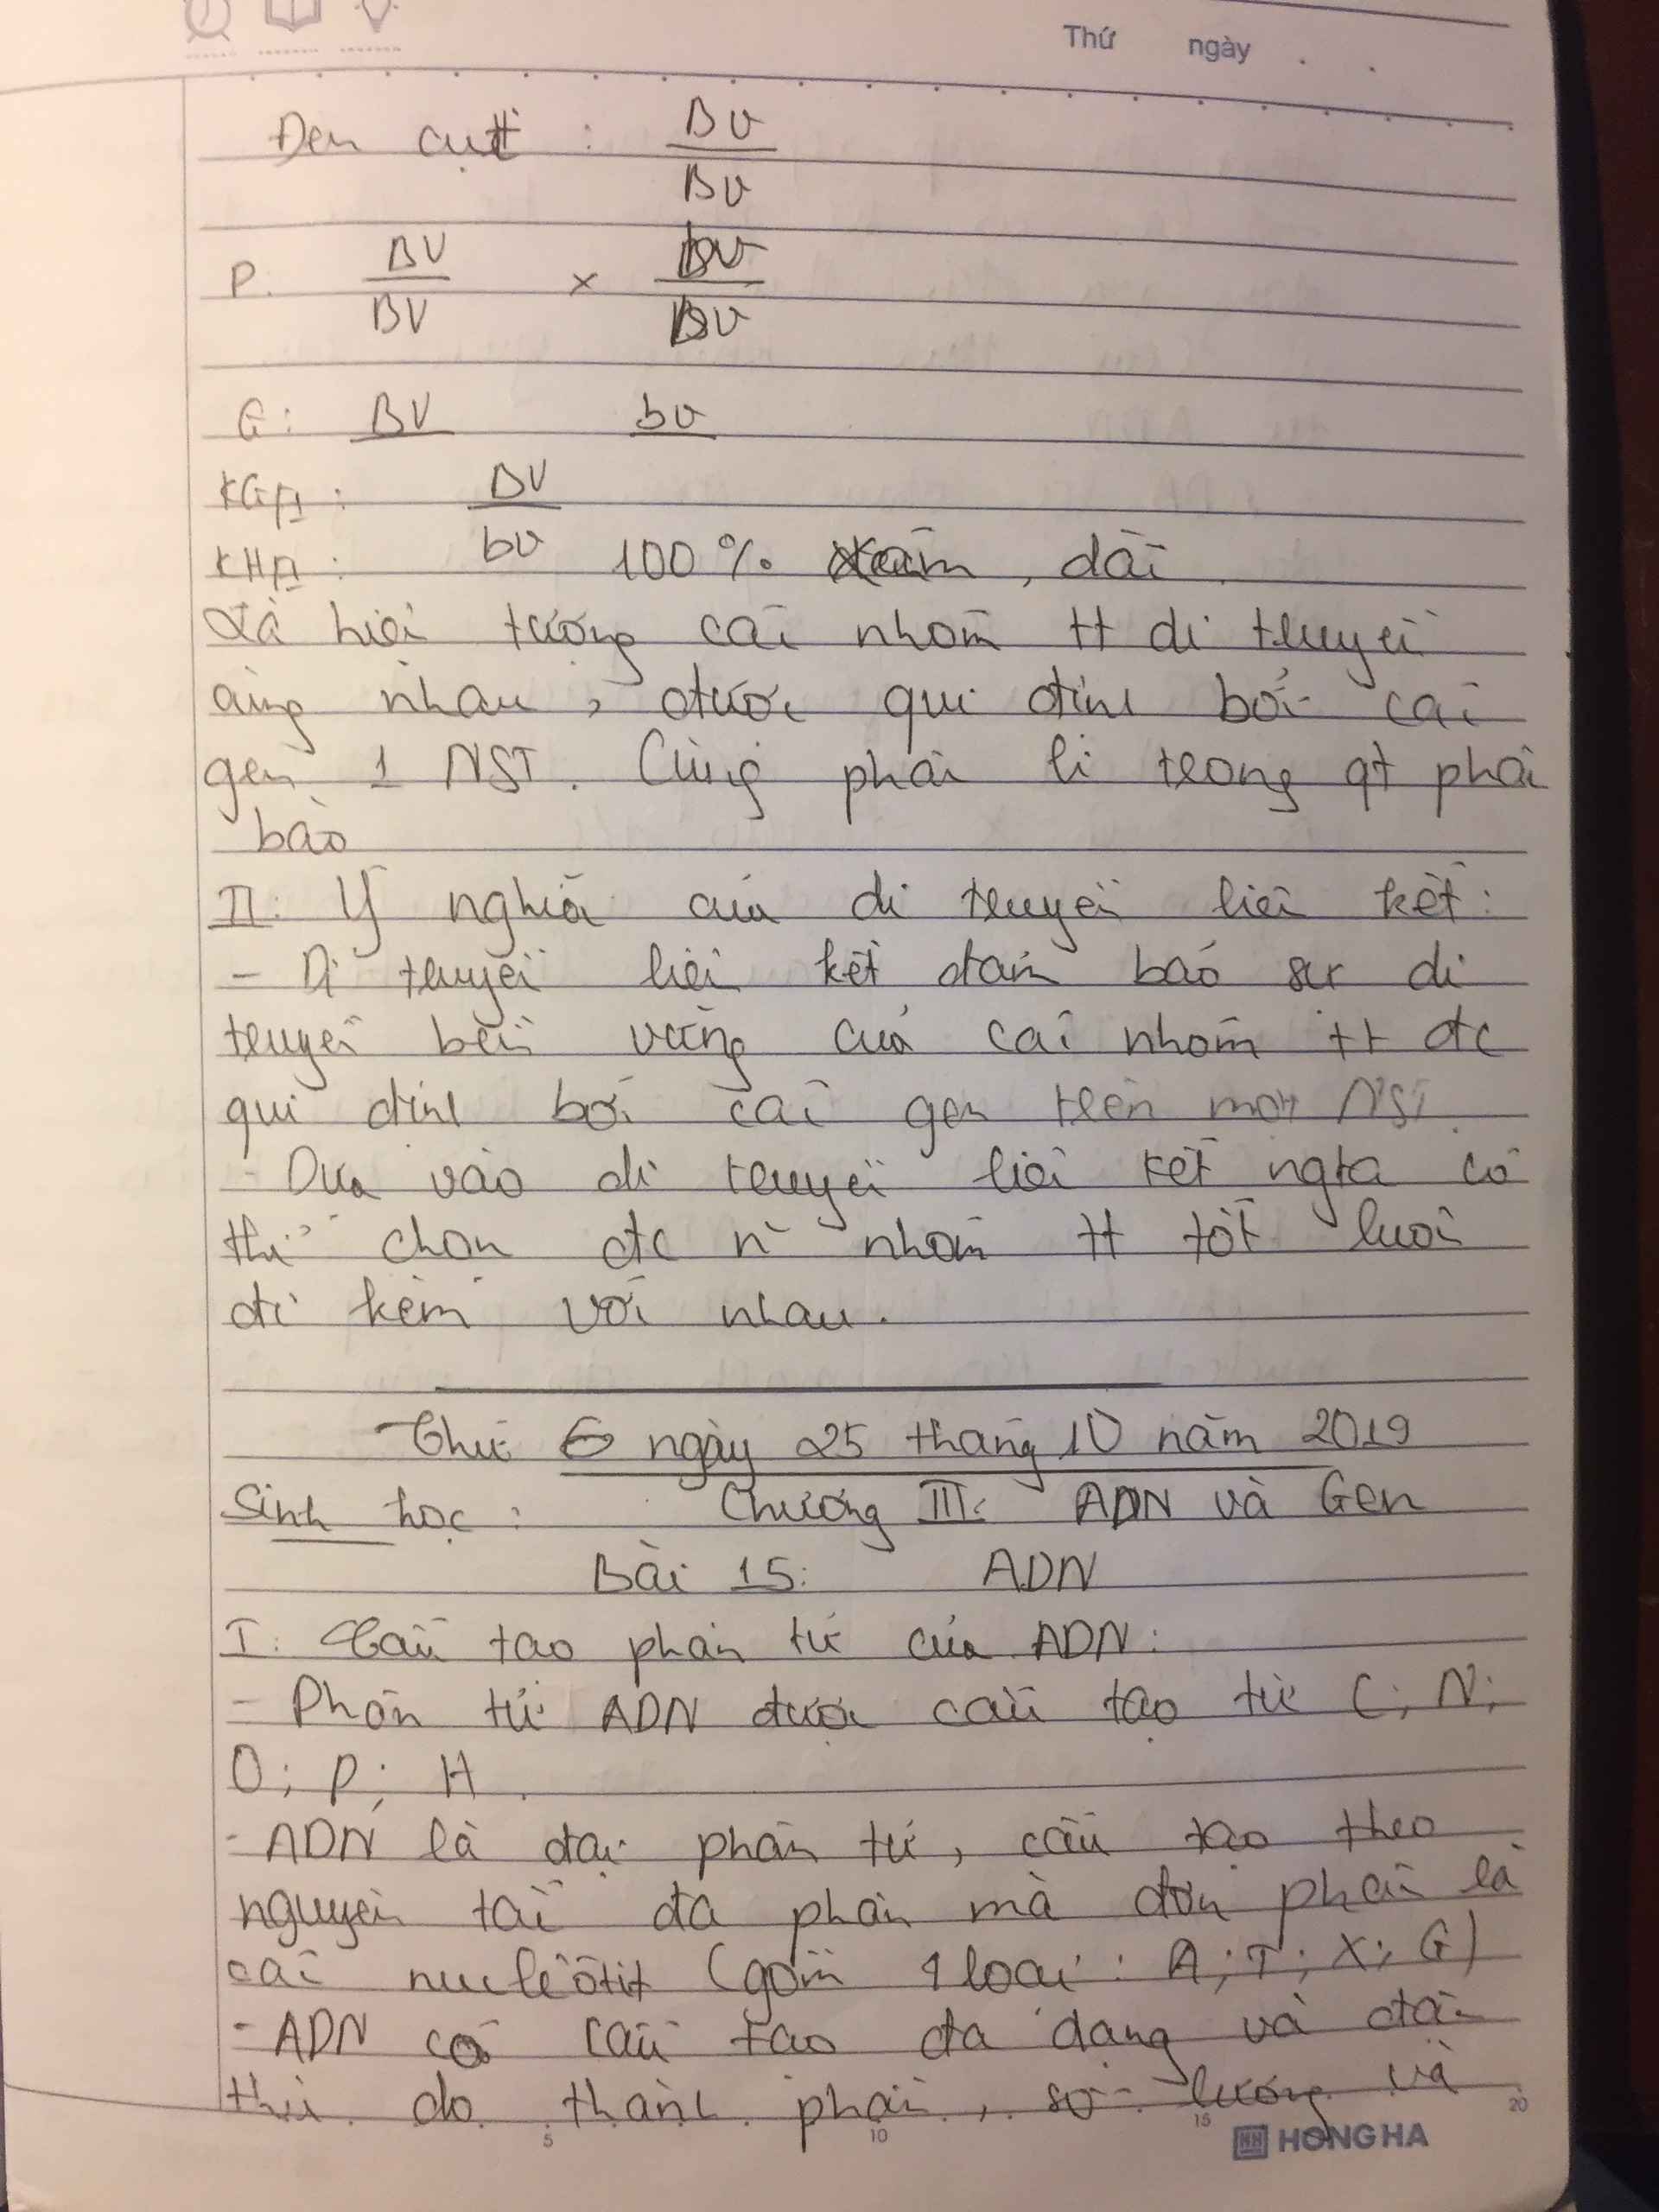 Thứ ngày . .
Đen cụt : Bv
Bv
P. BV × bv
BV bv
G: BV bv
KGF1 : BV
bv
KHF1 : 100% xám, dài
Là hiện tượng các nhóm tt di truyền
cùng nhau, được qui định bởi các
gen 1 NST. Cùng phân li trong qt phân
bào
II: Ý nghĩa của di truyền liên kết:
- Di truyền liên kết đảm bảo sự di
truyền bền vững của các nhóm tt đc
qui định bởi các gen trên một NST.
- Dựa vào di truyền liên kết ngta có
thể chọn đc n~ nhóm tt tốt luôn
đi kèm với nhau.
Thứ 6 ngày 25 tháng 10 năm 2019
Sinh học : Chương III: ADN và Gen
Bài 15: ADN
I: Cấu tạo phân tử của ADN:
- Phân tử ADN được cấu tạo từ C; N;
O; P; H.
- ADN là đại phân tử, cấu tạo theo
nguyên tắc đa phân mà đơn phân là
các nuclêôtit (gồm 4 loại: A; T; X; G)
- ADN có cấu tạo đa dạng và đặc
thù do thành phần, số lượng và
5 10 15 20
HH HONG HA